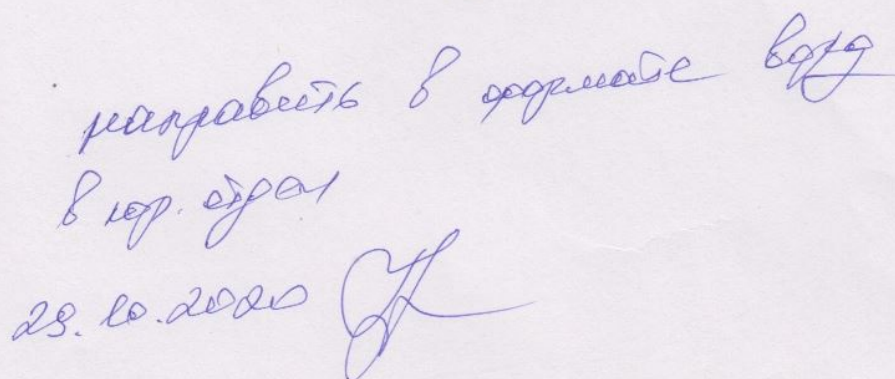 направить в формате ворд
в юр. отдел
29.10.2020